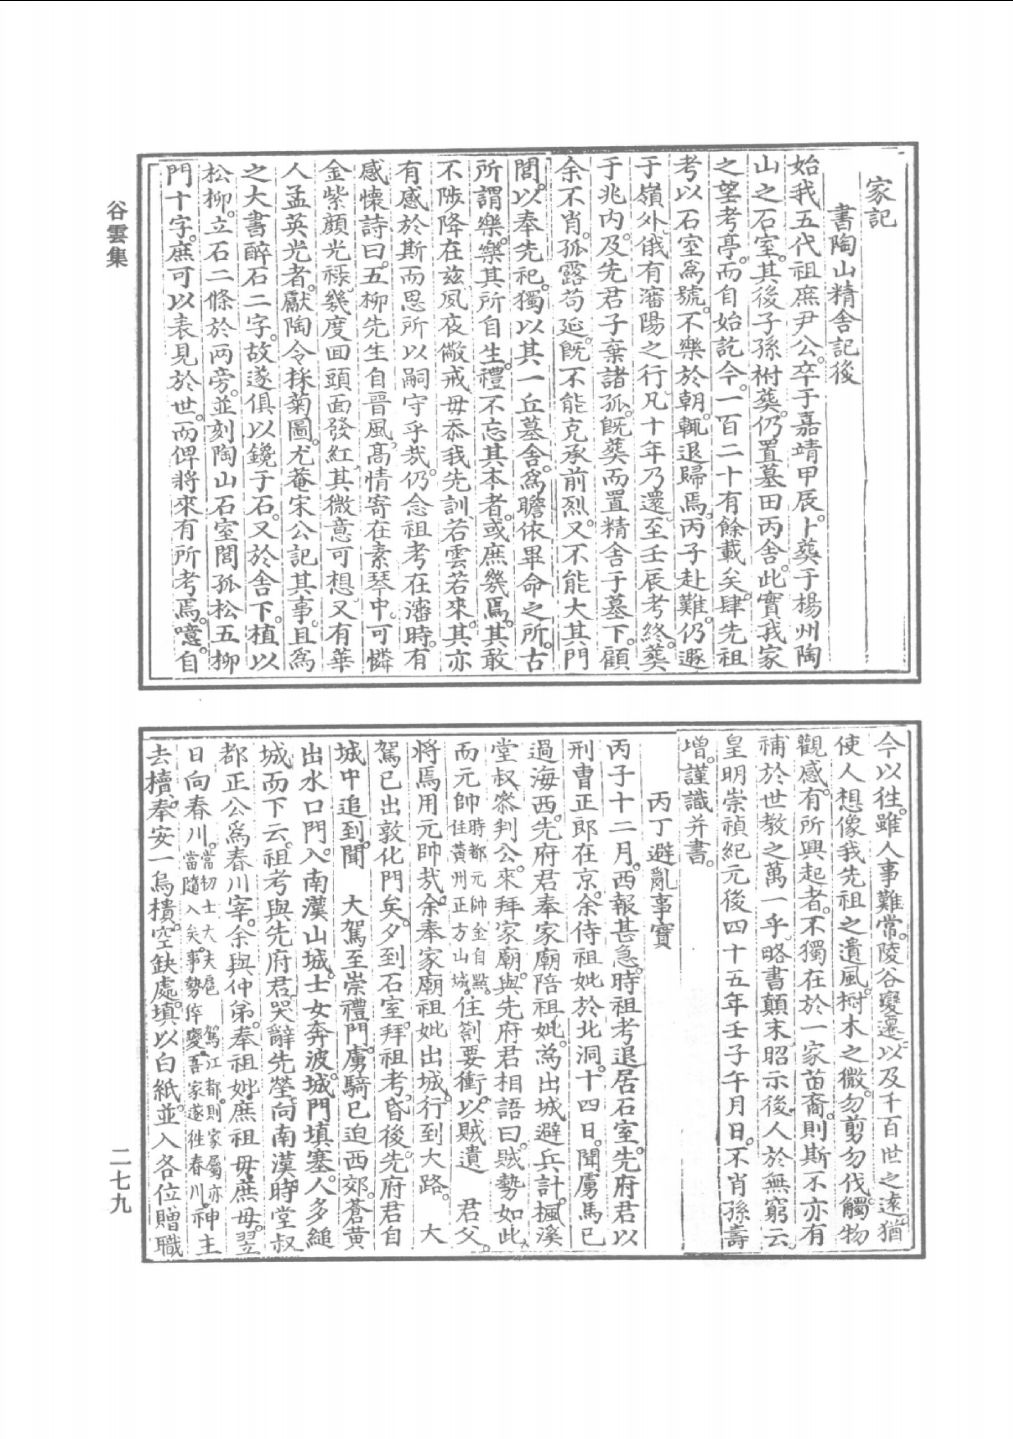 家記
書陶山精舍記後
始我五代祖庶尹公。卒于嘉靖甲辰。卜葬于楊州陶
山之石室。其後子孫祔葬。仍置墓田丙舍。此實我家
之望考亭。而自始訖今。一百二十有餘載矣。肆先祖
考以石室爲號。不樂於朝。輒退歸焉。丙子赴難。仍遯
于嶺外。俄有瀋陽之行。凡十年乃還。至壬辰考終。葬
于兆內。及先君子棄諸孤。旣葬而置精舍于墓下。顧
余不肖。孤露苟延。旣不能克承前烈。又不能大其門
閭。以奉先祀。獨以其一丘墓舍。爲瞻依畢命之所。古
所謂樂樂其所自生。禮不忘其本者。或庶幾焉。其敢
不陟降在玆。夙夜儆戒。毋忝我先訓。若雲若來。其亦
有感於斯而思所以嗣守乎哉。仍念祖考在瀋時。有
感懷詩曰。五柳先生自晉風。高情寄在素琴中。可憐
金紫顔光祿。幾度回頭面發紅。其微意可想。又有華
人孟英光者。獻陶令採菊圖。尤菴宋公記其事。且爲
之大書醉石二字。故遂俱以鑱于石。又於舍下。植以
松柳。立石二條於兩旁。並刻陶山石室閭孤松五柳
門十字。庶可以表見於世。而俾將來有所考焉。噫。自
今以往。雖人事難常。陵谷變遷。以及千百世之遠。猶
使人想像我先祖之遺風。樹木之微。勿剪勿伐。觸物
觀感。有所興起者。不獨在於一家苗裔。則斯不亦有
補於世敎之萬一乎。略書顚末。昭示後人於無窮云。
皇明崇禎紀元後四十五年壬子午月日。不肖孫壽
增。謹識幷書。
丙丁避亂事實
丙子十二月。西報甚急。時祖考退居石室。先府君以
刑曹正郎在京。余侍祖妣於北洞。十四日。聞虜馬已
過海西。先府君奉家廟陪祖妣。爲出城避兵計。楓溪
堂叔參判公。來拜家廟。與先府君相語曰。賊勢如此。
而元帥時都元帥金自點。住黃州正方山城。住劄要衝。以賊遺 君父。
將焉用元帥哉。余奉家廟祖妣出城。行到大路。 大
駕已出敦化門矣。夕到石室。拜祖考。昏後。先府君自
城中追到。聞 大駕至崇禮門。虜騎已迫西郊。蒼黃
出水口門。入南漢山城。士女奔波。城門塡塞。人多縋
城而下云。祖考與先府君哭辭先塋。向南漢。時堂叔
都正公爲春川宰。余與仲弟。奉祖妣庶祖母庶母。翌
日向春川。當初士大夫扈 駕江都。則家屬亦當隨入矣。事勢倅變。吾家遂往春川。神主
去櫝。奉安一烏樻。空缺處。塡以白紙。並入各位贈職
谷雲集
二七九